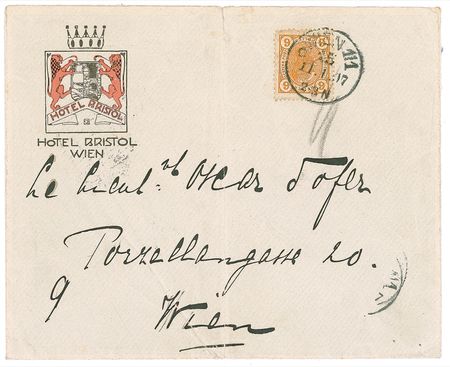 HOTEL BRISTOL
HOTEL BRISTOL
WIEN
6 6
WIEN 1/1
11. 17
Le Lieut. Oscar d'Ofer
Porzellangasse 20.
9
Wien